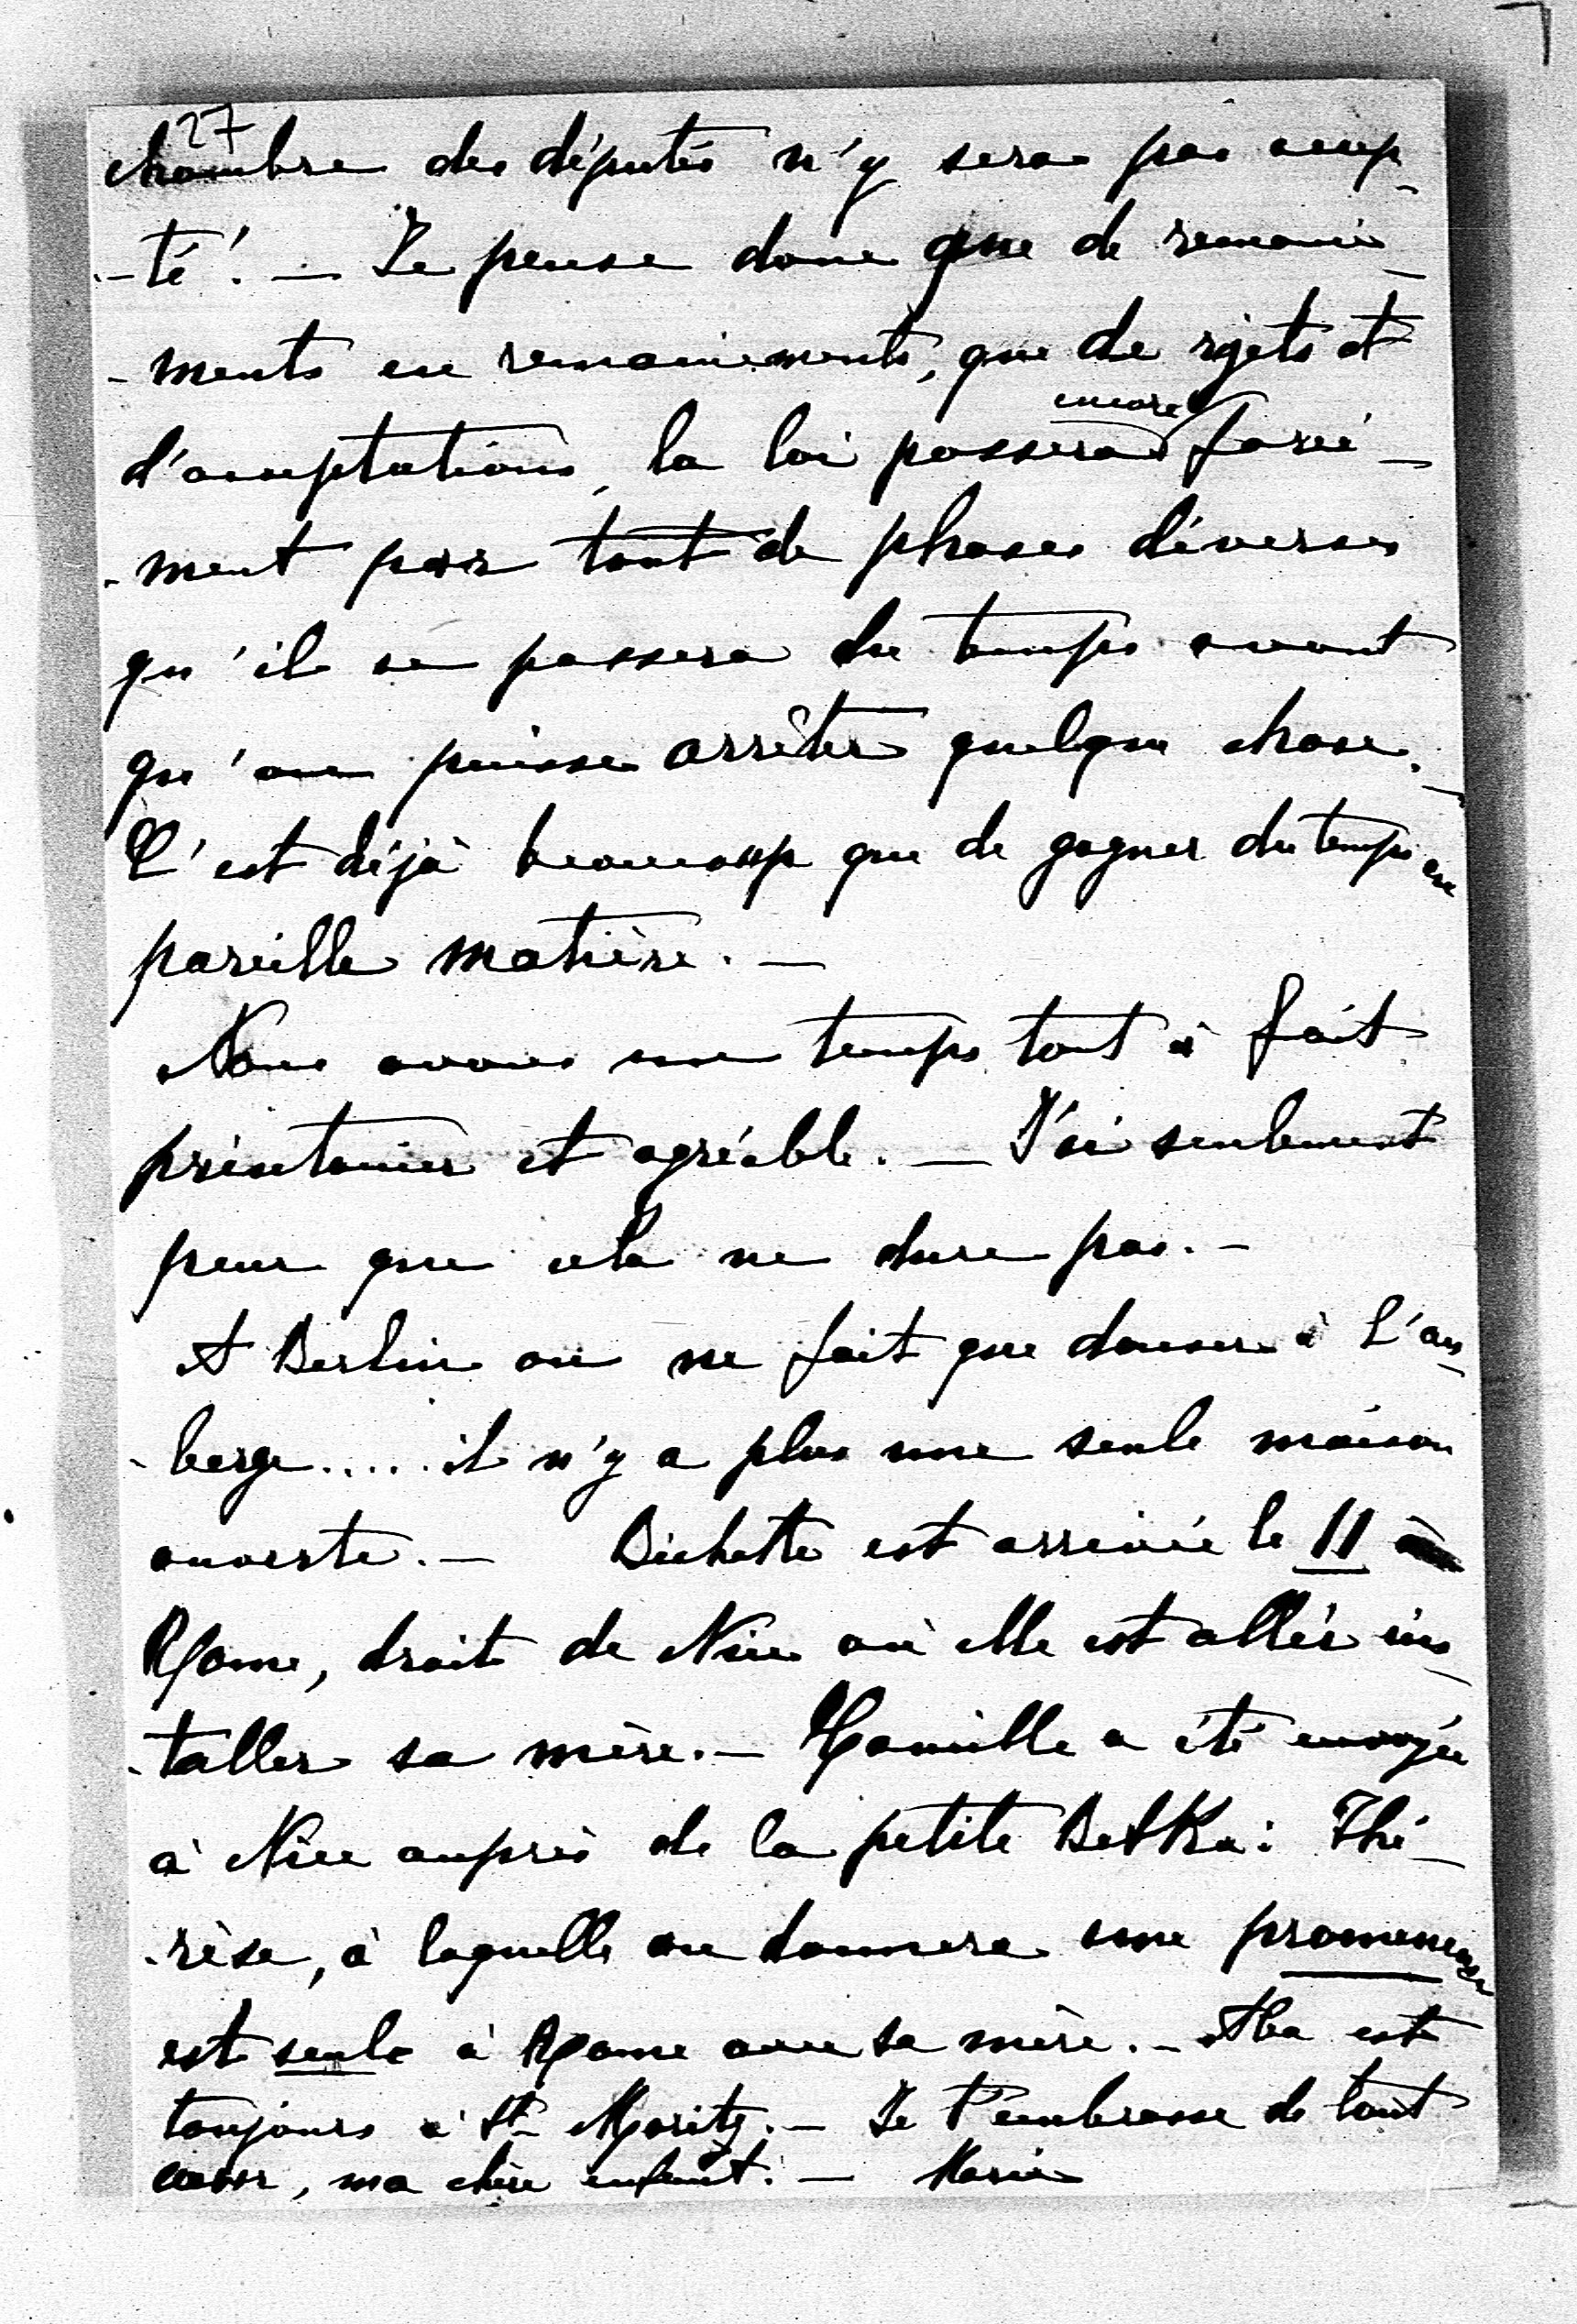 27
chambre des députés n'y sera pas accep-
-té! — Je pense donc que de remanie-
-ments en remaniements, que de rejets et
encore
d'acceptations, la loi passera forcé-
-ment par tant de phases diverses
qu'il se passera du temps avant
qu'on puisse arrêter quelque chose. —
C'est déjà beaucoup que de gagner du temps en
pareille matière. —
Nous avons un temps tout à fait
printanier et agréable. — J'ai seulement
peur que cela ne dure pas. —
A Berlin on ne fait que danser à l'au-
-berge..... il n'y a plus une seule maison
ouverte. — Bichette est arrivée le 11 à
Rome, droit de Nice où elle est allée ins-
-taller sa mère. — Camille a été envoyée
à Nice auprès de la petite Betka: Thé-
-rèse, à laquelle on donnera une promeneuse
est seule à Rome avec sa mère. — Aba est
toujours à St Moritz. — Je t'embrasse de tout
coeur, ma chère enfant. — Marie